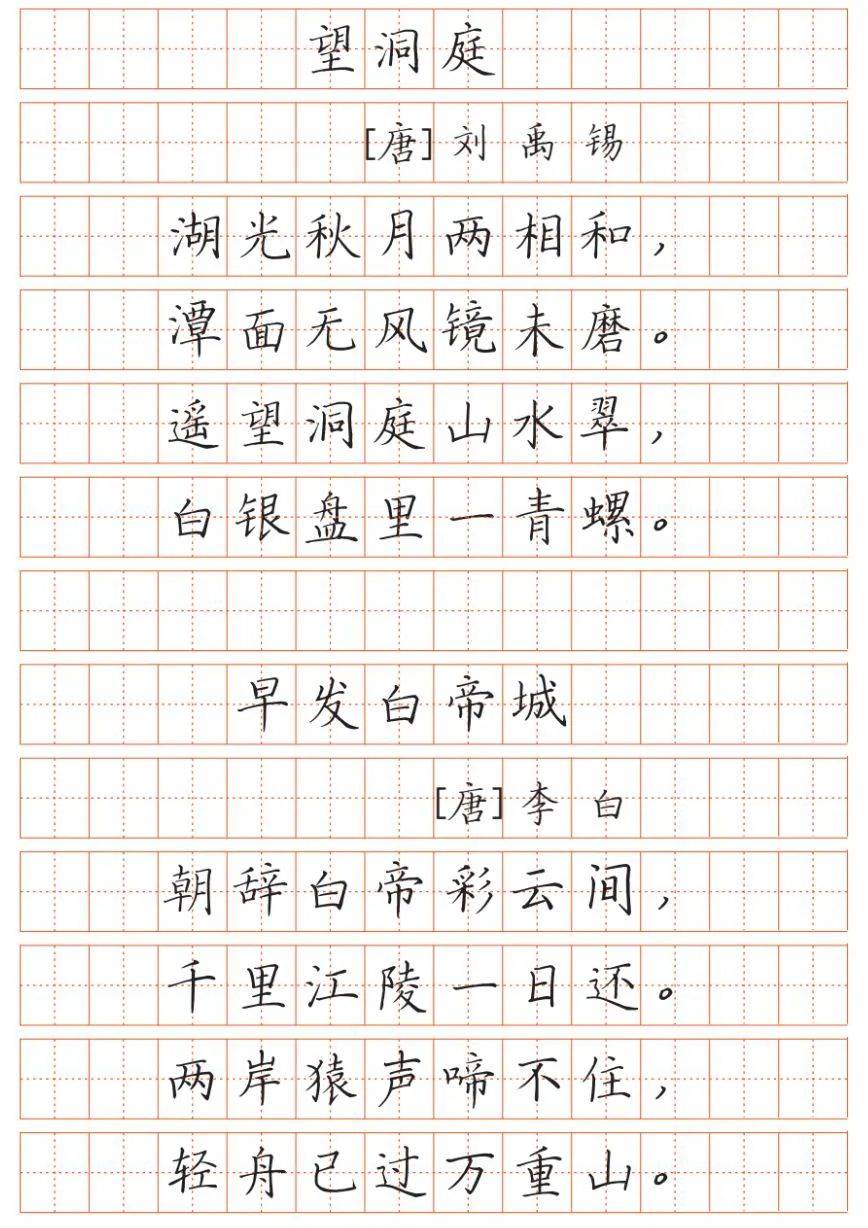 望洞庭
[唐]刘禹锡
湖光秋月两相和，
潭面无风镜未磨。
遥望洞庭山水翠，
白银盘里一青螺。
早发白帝城
[唐]李白
朝辞白帝彩云间，
千里江陵一日还。
两岸猿声啼不住，
轻舟已过万重山。